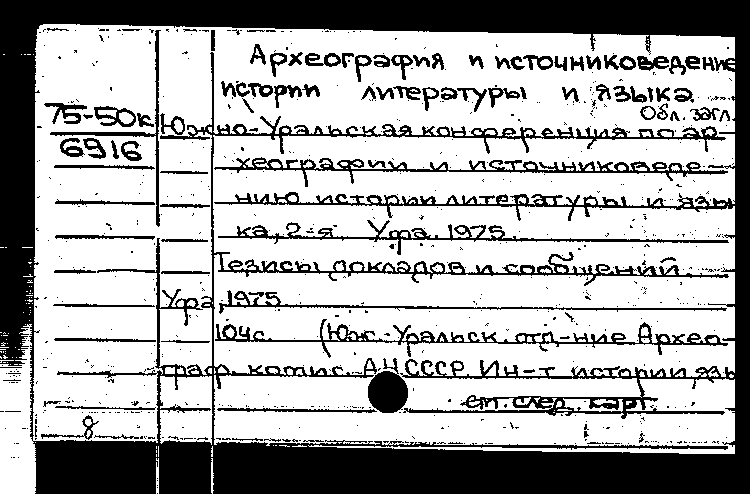 Археография и источниковедение
истории литературы и языка
Обл. загл.
75-50к
6916
Южно-Уральская конференция по ар-
хеографии и источниковеде-
нию истории литературы и язы
ка, 2-я. Уфа. 1975.
Тезисы докладов и сообщений.
Уфа, 1975
104с. (Юж.-Уральск. отд-ние Архео-
граф. комис. АН СССР. Ин-т истории, язы
см. след. карт.
8